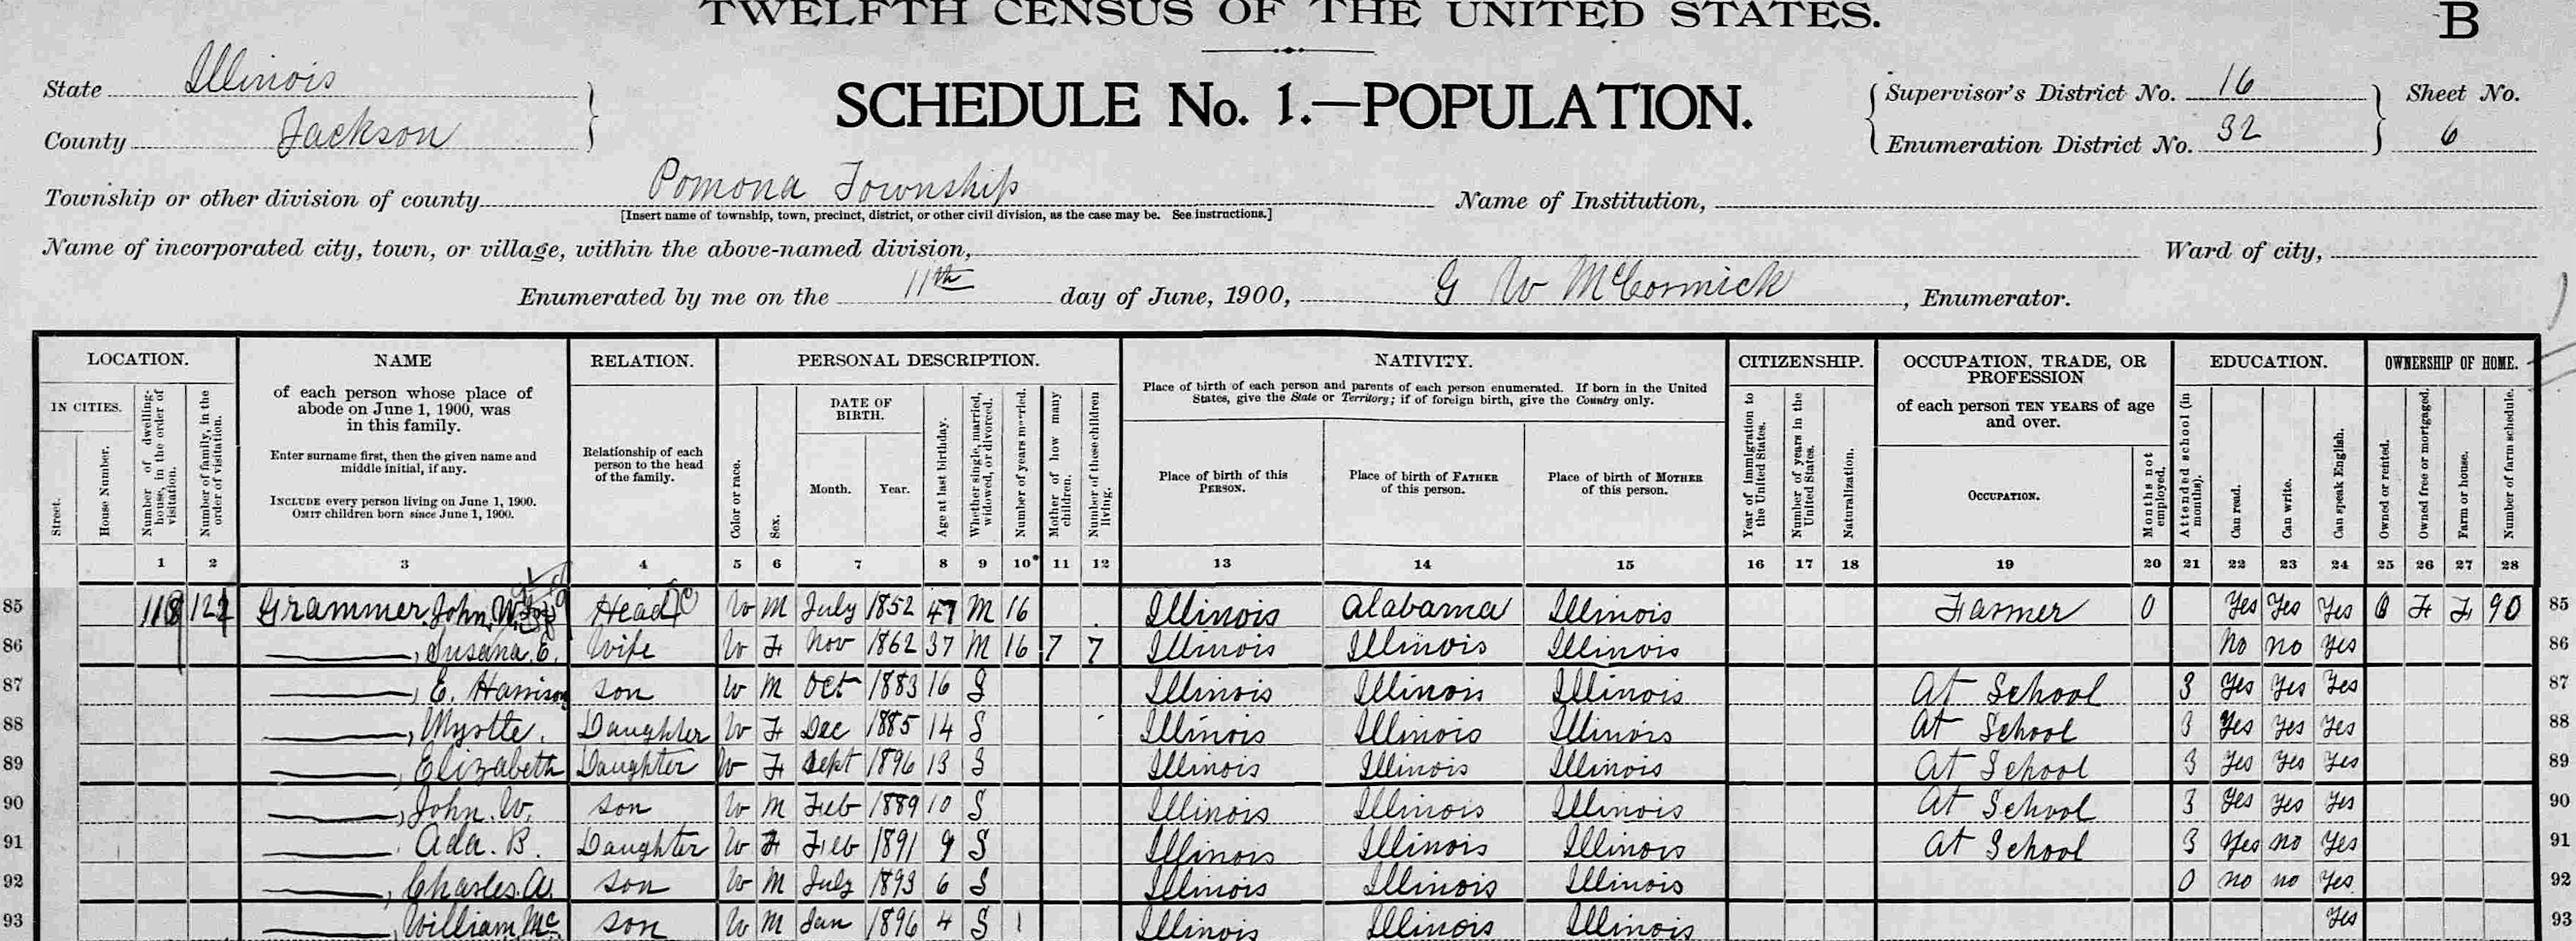 TWELFTH CENSUS OF THE UNITED STATES.
B
State Illinois
County Jackson
SCHEDULE No. 1.—POPULATION.
Supervisor's District No. 16
Enumeration District No. 32
Sheet No.
6
Township or other division of county Pomona Township
[Insert name of township, town, precinct, district, or other civil division, as the case may be. See instructions.]
Name of Institution,
Name of incorporated city, town, or village, within the above-named division,
Ward of city,
Enumerated by me on the 11th day of June, 1900, G W McCormick, Enumerator.
LOCATION.
IN CITIES.
Street.
House Number.
Number of dwelling-house, in the order of visitation.
Number of family, in the order of visitation.
NAME
of each person whose place of
abode on June 1, 1900, was
in this family.
Enter surname first, then the given name and
middle initial, if any.
INCLUDE every person living on June 1, 1900.
OMIT children born since June 1, 1900.
RELATION.
Relationship of each
person to the head
of the family.
PERSONAL DESCRIPTION.
Color or race.
Sex.
DATE OF
BIRTH.
Month.
Year.
Age at last birthday.
Whether single, married, widowed, or divorced.
Number of years married.
Mother of how many children.
Number of these children living.
NATIVITY.
Place of birth of each person and parents of each person enumerated. If born in the United
States, give the State or Territory; if of foreign birth, give the Country only.
Place of birth of this
PERSON.
Place of birth of FATHER
of this person.
Place of birth of MOTHER
of this person.
CITIZENSHIP.
Year of immigration to the United States.
Number of years in the United States.
Naturalization.
OCCUPATION, TRADE, OR
PROFESSION
of each person TEN YEARS of age
and over.
OCCUPATION.
Months not employed.
EDUCATION.
Attended school (in months).
Can read.
Can write.
Can speak English.
OWNERSHIP OF HOME.
Owned or rented.
Owned free or mortgaged.
Farm or house.
Number of farm schedule.
1 2 3 4 5 6 7 8 9 10 11 12 13 14 15 16 17 18 19 20 21 22 23 24 25 26 27 28
85 118 Grammer John W. Head W M July 1852 47 M 16 Illinois Alabama Illinois Farmer 0 Yes Yes Yes O F F 90 85
86 , Susana E. Wife W F Nov 1862 37 M 16 7 7 Illinois Illinois Illinois No no yes 86
87 , E. Harrison son W M Oct 1883 16 S Illinois Illinois Illinois At School 3 Yes Yes Yes 87
88 , Myrtle. Daughter W F Dec 1885 14 S Illinois Illinois Illinois At School 3 Yes Yes Yes 88
89 , Elizabeth Daughter W F Sept 1896 13 S Illinois Illinois Illinois At School 3 Yes Yes Yes 89
90 , John. W. son W M Feb 1889 10 S Illinois Illinois Illinois At School 3 Yes Yes Yes 90
91 Ada. B. Daughter W F Feb 1891 9 S Illinois Illinois Illinois At School 3 Yes no Yes 91
92 , Charles. A. son W M July 1893 6 S Illinois Illinois Illinois 0 no no Yes 92
93 , William Mc son W M Jan 1896 4 S Illinois Illinois Illinois Yes 93